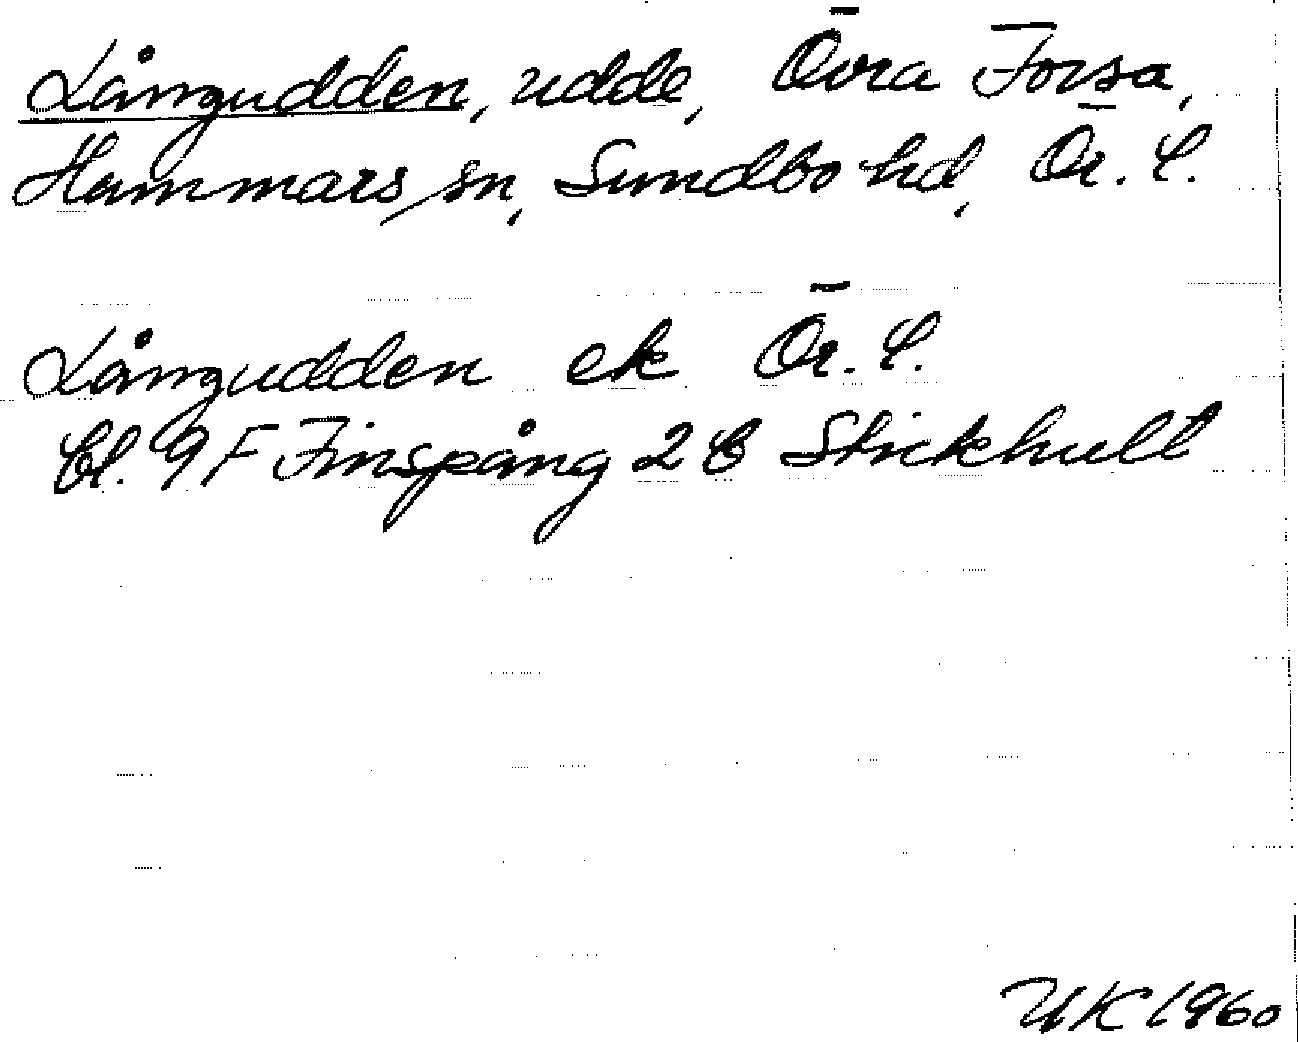 Långudden, udde, Övra Forsa,
Hammars sn, Sundbo hd, Ör. L.
Långudden ek Ör. L.
Bl. 9F Finspång 2 C Stickhult
UK 1960